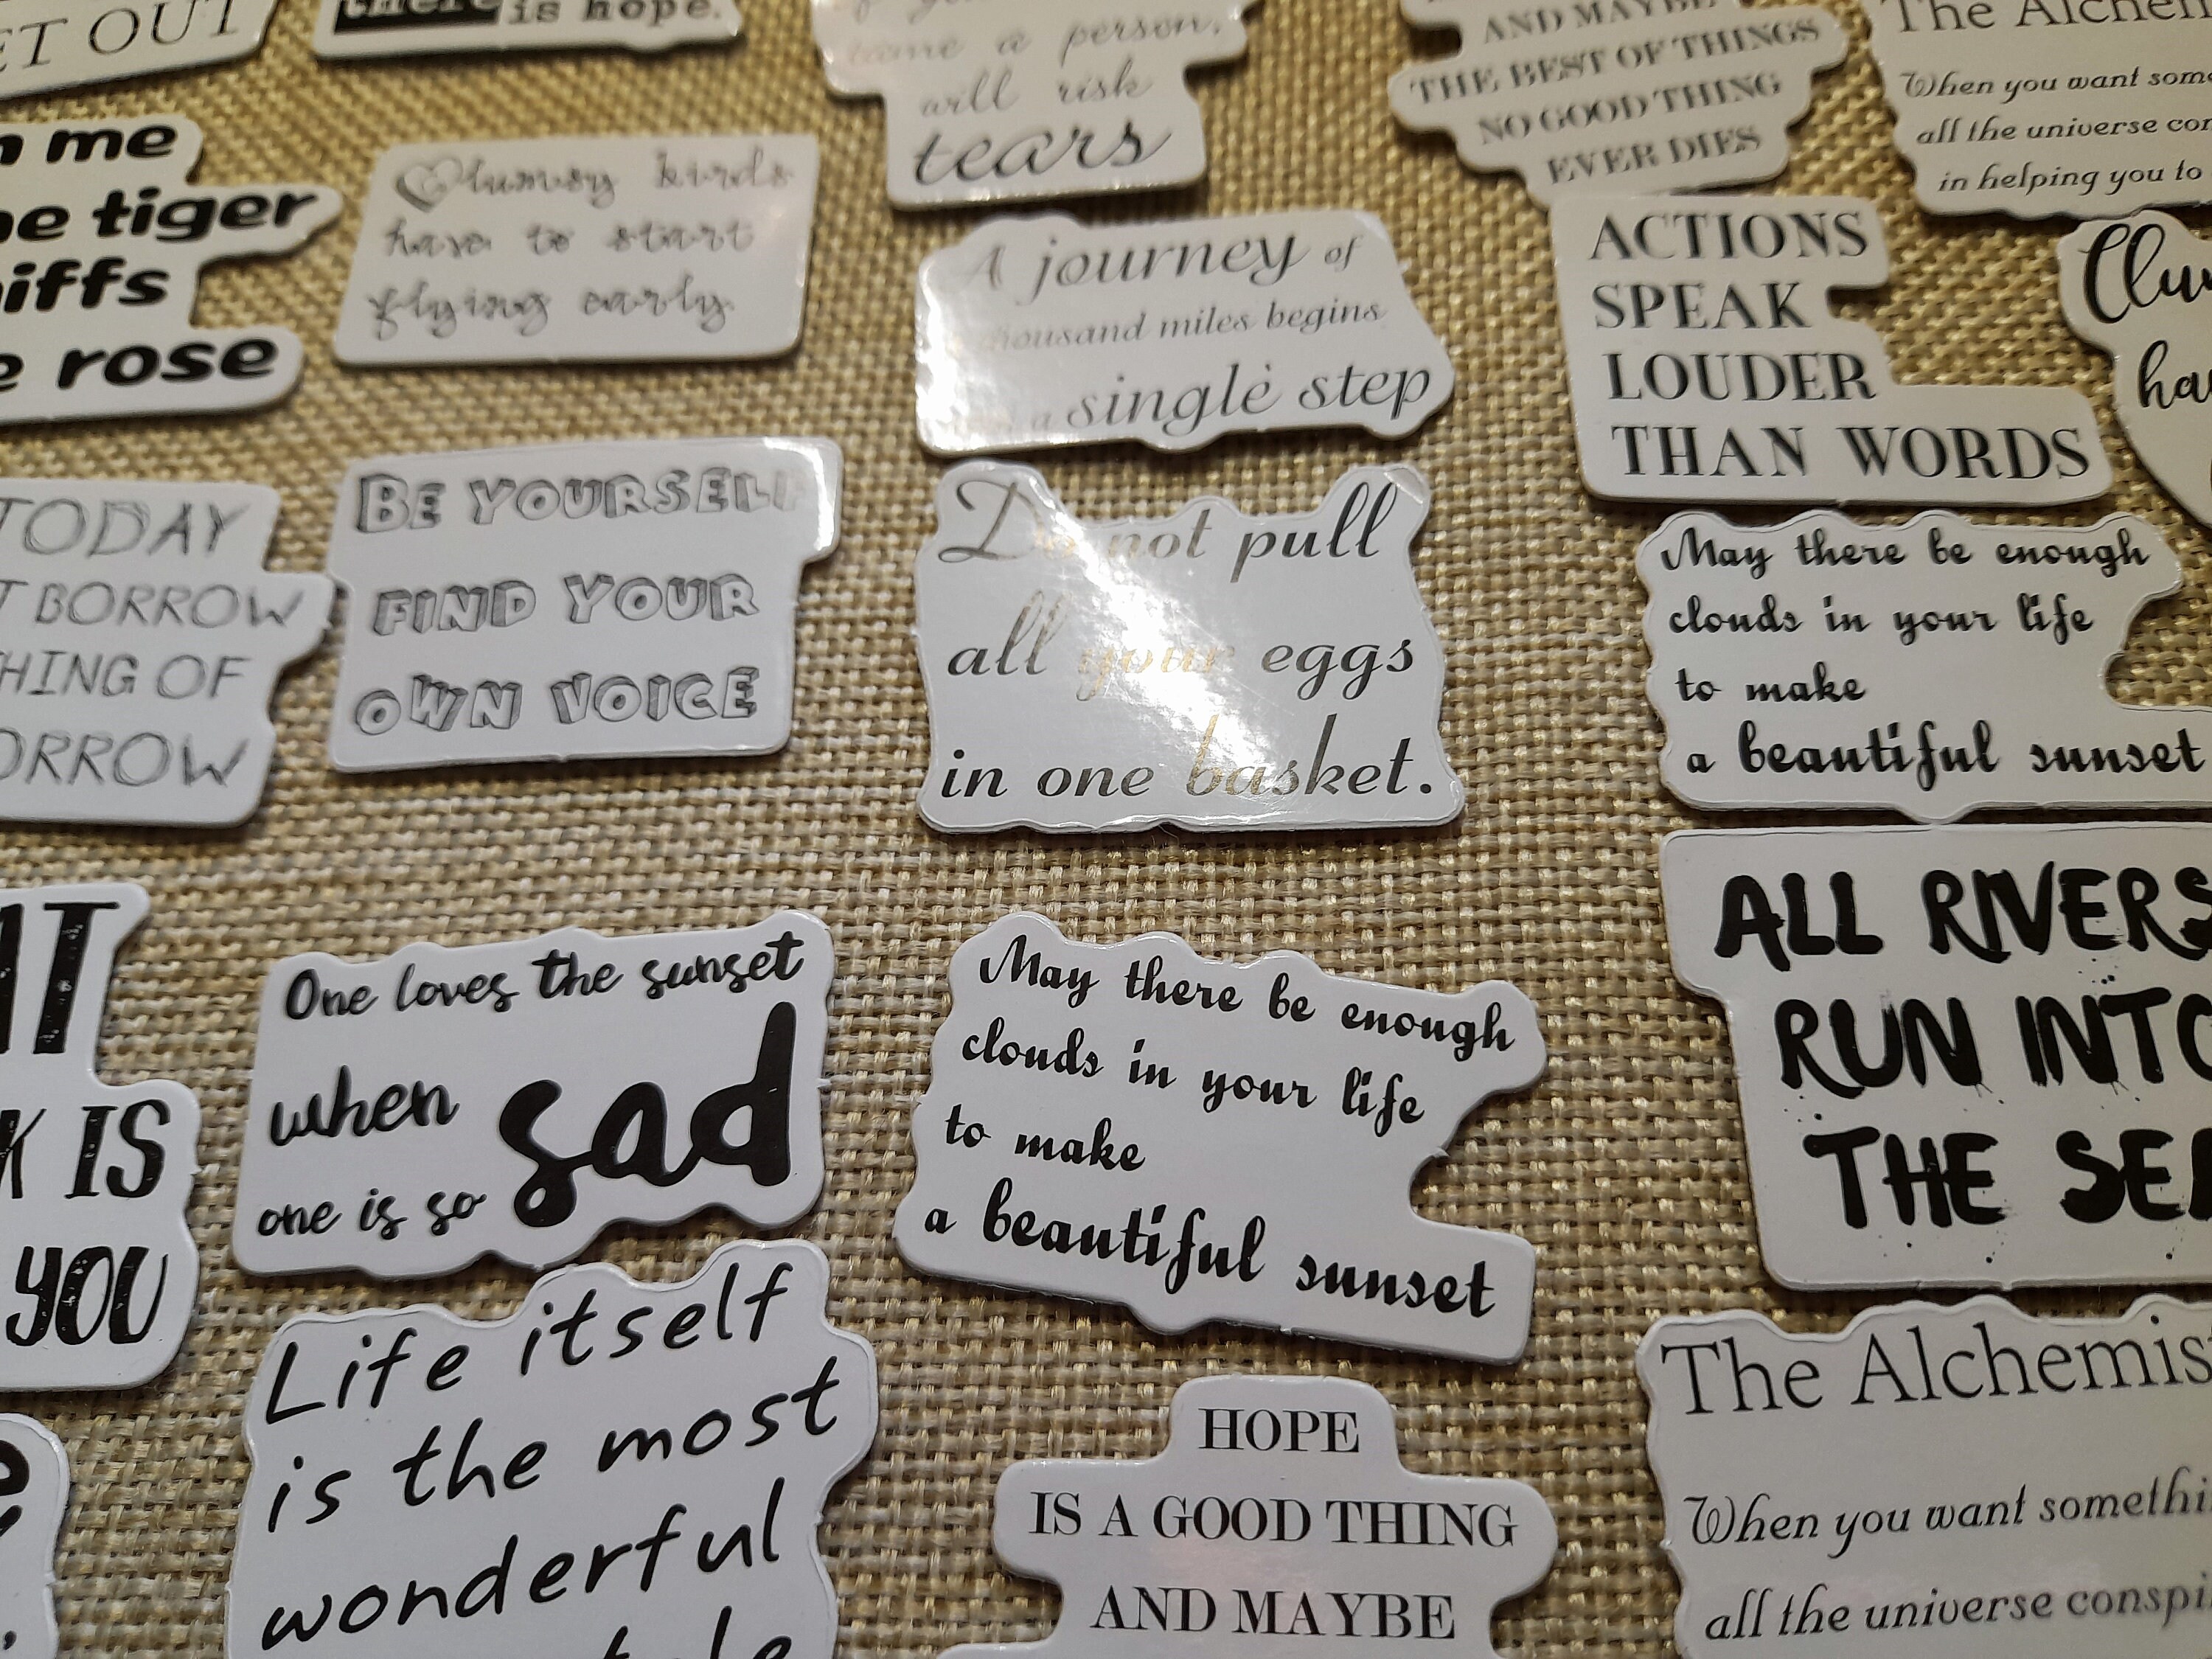 ET OUT
there is hope.
come a person,
will risk
tears
AND MAYBE
THE BEST OF THINGS
NO GOOD THING
EVER DIES
The Alchem
When you want some
all the universe con
in helping you to
me
tiger
iffs
rose
Clumsy birds
have to start
flying early.
A journey of
thousand miles begins
a single step
ACTIONS
SPEAK
LOUDER
THAN WORDS
Clu
ha
TODAY
T BORROW
HING OF
ORROW
BE YOURSELF
FIND YOUR
OWN VOICE
Do not pull
all your eggs
in one basket.
May there be enough
clouds in your life
to make
a beautiful sunset
AT
K IS
YOU
One loves the sunset
when sad
one is so
May there be enough
clouds in your life
to make
a beautiful sunset
ALL RIVERS
RUN INTO
THE SEA
Life itself
is the most
wonderful
HOPE
IS A GOOD THING
AND MAYBE
The Alchemist
When you want somethi
all the universe conspi